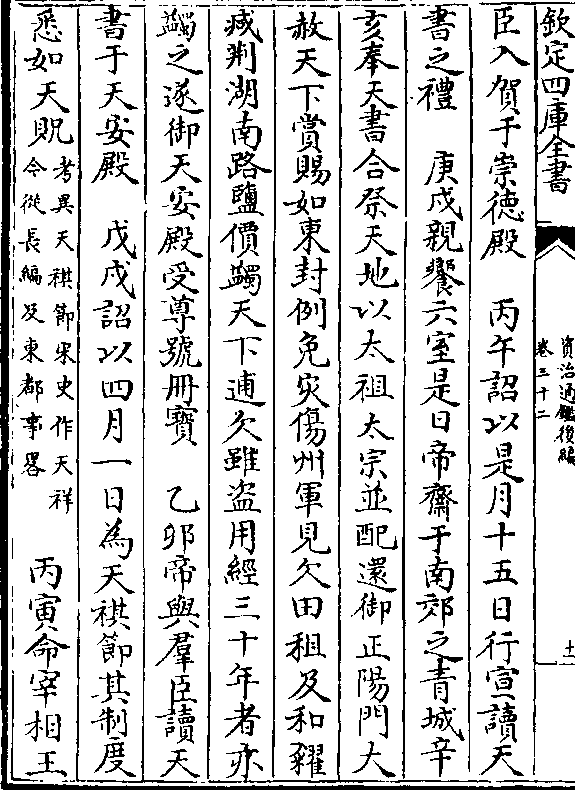 欽定四庫全書
資治通鑑後編
卷三十二
十一
臣入賀于崇德殿　丙午詔以是月十五日行宣讀天
書之禮　庚戌親饗六室是日帝齋于南郊之青城辛
亥奉天書合祭天地以太祖太宗並配還御正陽門大
赦天下賞賜如東封例免災傷州軍見欠田租及和糴
减荆湖南路鹽價蠲天下逋欠雖盗用經三十年者亦
蠲之遂御天安殿受尊號冊寶　乙卯帝與羣臣讀天
書于天安殿　戊戌詔以四月一日為天祺節其制度
悉如天貺考異天祺節宋史作天祥
今從長編及東都事畧　丙寅命宰相王